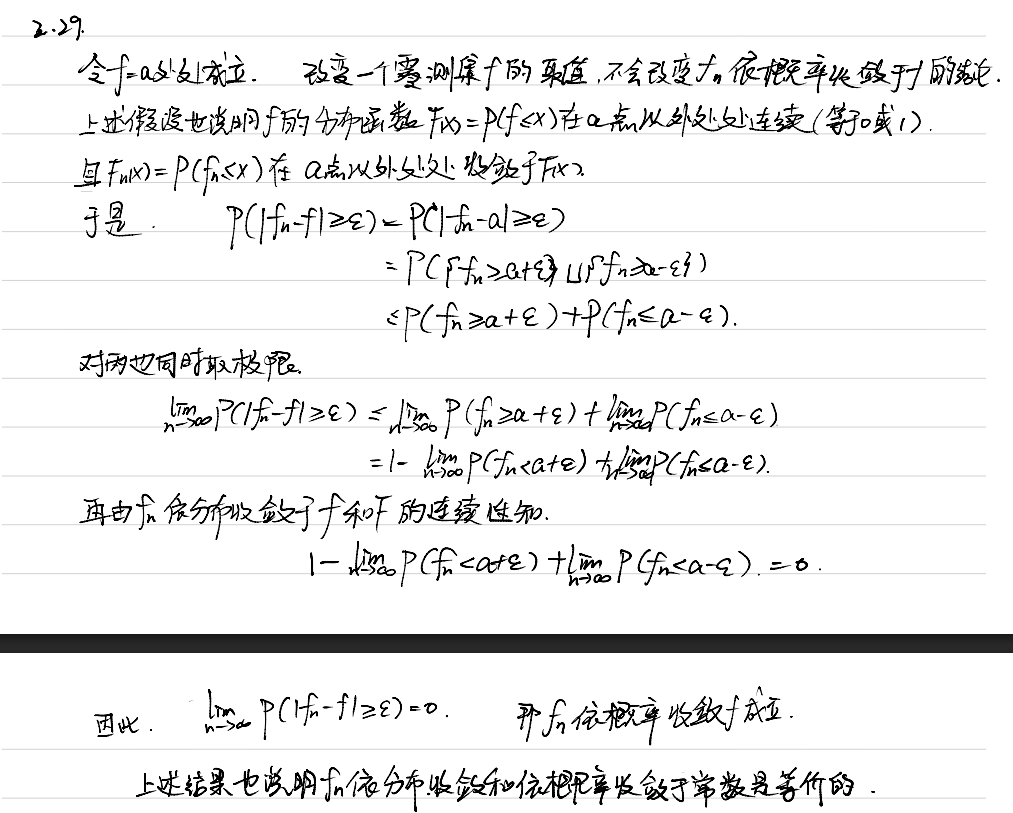 2.29.
令f=a处处成立. 改变一个零测集f的取值,不会改变fₙ依概率收敛于f的结论.
上述假设也说明f的分布函数F(x)=P(f≤x)在a点以外处处连续(等于0或1).
且Fₙ(x)=P(fₙ≤x)在a点以外处处收敛于F(x).
于是. P(|fₙ-f|≥ε)=P(|fₙ-a|≥ε)
=P({fₙ≥a+ε}∪{fₙ≥a-ε})
≤P(fₙ≥a+ε)+P(fₙ≤a-ε).
对两边同时取极限.
lim n→∞ P(|fₙ-f|≥ε) ≤ lim n→∞ P(fₙ≥a+ε)+lim n→∞ P(fₙ≤a-ε)
=1- lim n→∞ P(fₙ<a+ε)+lim n→∞ P(fₙ≤a-ε).
再由fₙ依分布收敛于f和F的连续性知.
1-lim n→∞ P(fₙ<a+ε)+lim n→∞ P(fₙ<a-ε).=0.
因此. lim n→∞ P(|fₙ-f|≥ε)=0. 即fₙ依概率收敛f成立.
上述结果也说明fₙ依分布收敛和依概率收敛于常数是等价的.